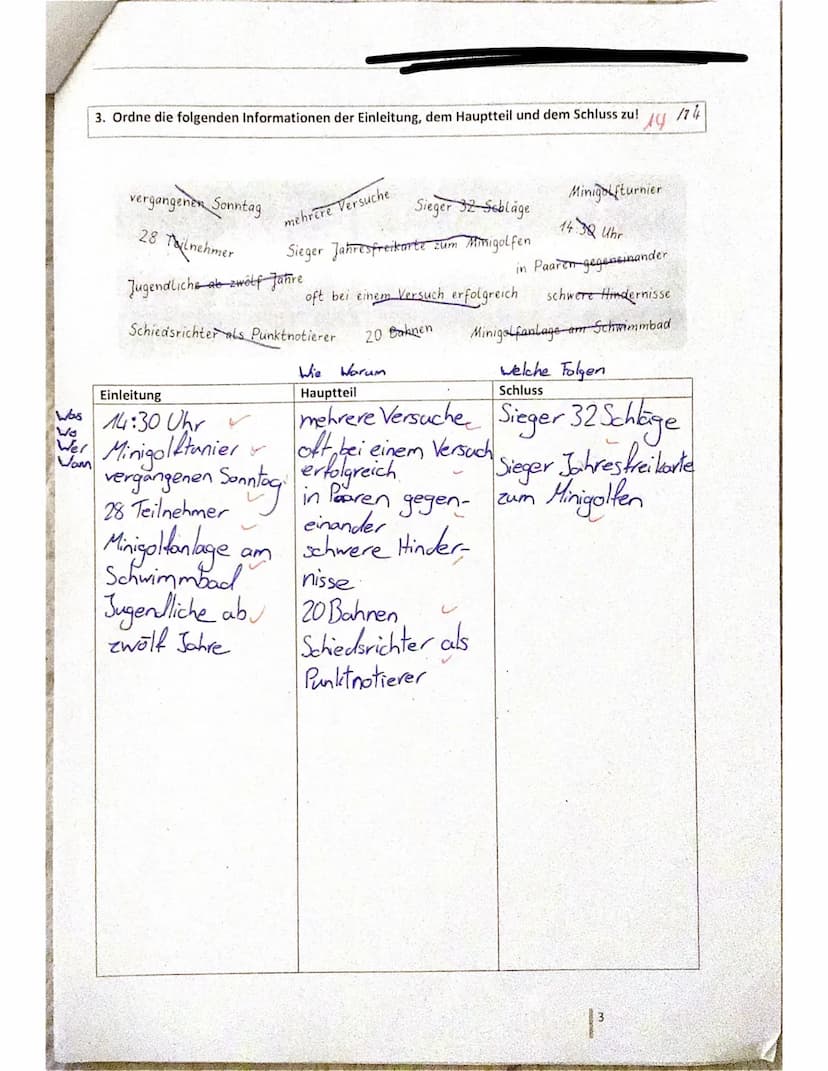 3. Ordne die folgenden Informationen der Einleitung, dem Hauptteil und dem Schluss zu! 14 /14
vergangenen Sonntag mehrere Versuche Sieger 32 Schläge Minigolfturnier
28 Teilnehmer Sieger Jahresfreikarte zum Minigolfen 14:30 Uhr
Jugendliche ab zwölf Jahre in Paaren gegeneinander
oft bei einem Versuch erfolgreich schwere Hindernisse
Schiedsrichter als Punktnotierer 20 Bahnen Minigolfanlage am Schwimmbad
Wie Warum Welche Folgen
Einleitung Hauptteil Schluss
Was
Wo
Wer
Wann
14:30 Uhr
Minigolftunier
vergangenen Sonntag
28 Teilnehmer
Minigolfanlage am
Schwimmbad
Jugendliche ab
zwölf Jahre
mehrere Versuche
oft bei einem Versuch
erfolgreich
in Paaren gegen-
einander
schwere Hinder-
nisse
20 Bahnen
Schiedsrichter als
Punktnotierer
Sieger 32 Schläge
Sieger Jahresfreikarte
zum Minigolfen
3